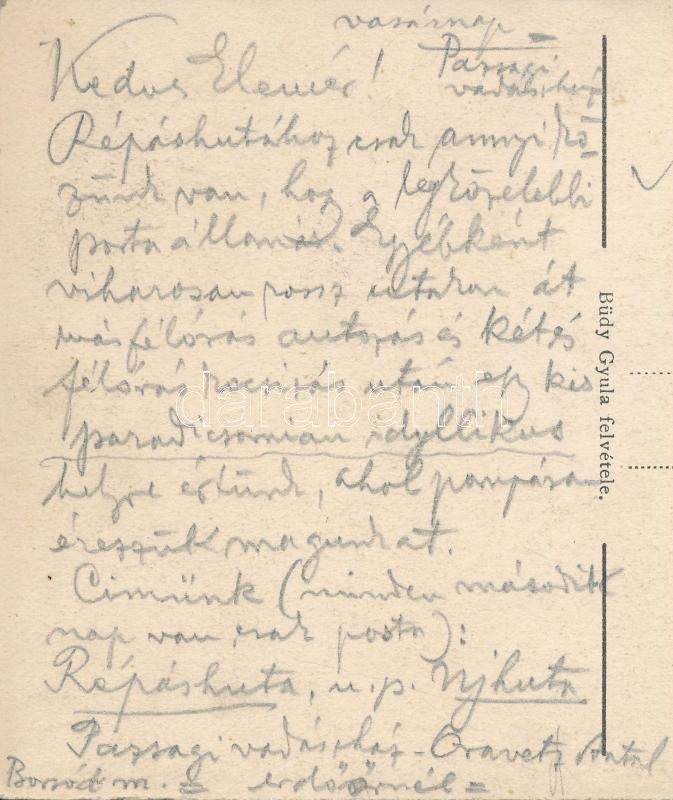 vasárnap
Passagi
vadászház
Kedves Elemér!
Répáshutához csak annyi kö-
zünk van, hogy a legközelebbi
postaállomás. Egyébként
viharosan rossz utakon át
másfélórás autózás és két és
félórás kocsizás után egy kis
paradicsomian idyllikus
helyre értünk, ahol pompásan
érezzük magunkat.
Cimünk (minden második
nap van csak posta):
Répáshuta, u.p. Ujhuta
Passagi vadászház - Oravetz Antal
Borsod m. erdőőrnél =
Büdy Gyula felvétele.
darabanth